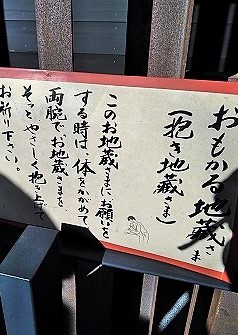 おもかる地蔵さま
(抱き地蔵さま)
このお地蔵さまにお願いを
する時は、体をかがめて、
両腕で、お地蔵さまを
そっとやさしく抱き上げて
お祈り下さい。